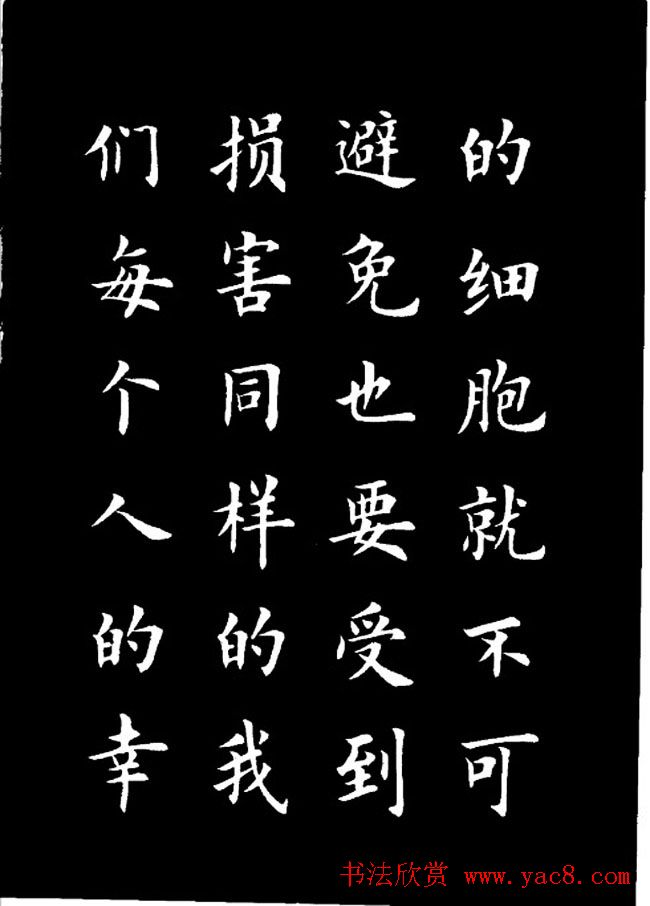 的细胞就不可
避免也要受到
损害同样的我
们每个人的幸
书法欣赏 www.yac8.com